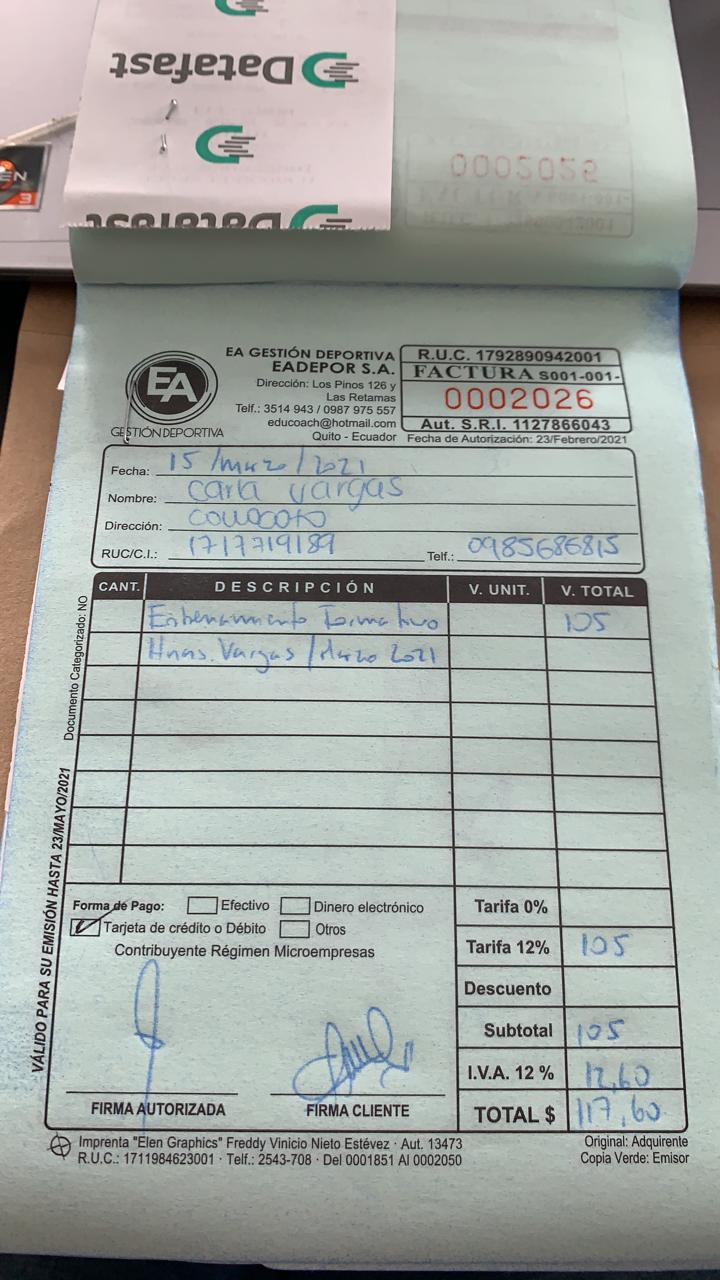 Datafast
Datafast
0002026
EA
GESTIÓN DEPORTIVA
EA GESTIÓN DEPORTIVA
EADEPOR S.A.
Dirección: Los Pinos 126 y
Las Retamas
Telf.: 3514 943 / 0987 975 557
educoach@hotmail.com
Quito - Ecuador
R.U.C. 1792890942001
FACTURA S001-001-
0002026
Aut. S.R.I. 1127866043
Fecha de Autorización: 23/Febrero/2021
Fecha: 15/marzo/2021
Nombre: Carla Vargas
Dirección: Conocoto
RUC/C.I.: 1717719189 Telf.: 0985686815
CANT. DESCRIPCIÓN V. UNIT. V. TOTAL
Entrenamiento Formativo 105
Hnas. Vargas / Marzo 2021
Documento Categorizado: NO
VÁLIDO PARA SU EMISIÓN HASTA 23/MAYO/2021
Forma de Pago: Efectivo Dinero electrónico
Tarjeta de crédito o Débito Otros
Contribuyente Régimen Microempresas
Tarifa 0%
Tarifa 12% 105
Descuento
Subtotal 105
I.V.A. 12 % 12,60
TOTAL $ 117,60
FIRMA AUTORIZADA FIRMA CLIENTE
Imprenta "Elen Graphics" Freddy Vinicio Nieto Estévez · Aut. 13473
R.U.C.: 1711984623001 · Telf.: 2543-708 · Del 0001851 Al 0002050
Original: Adquirente
Copia Verde: Emisor